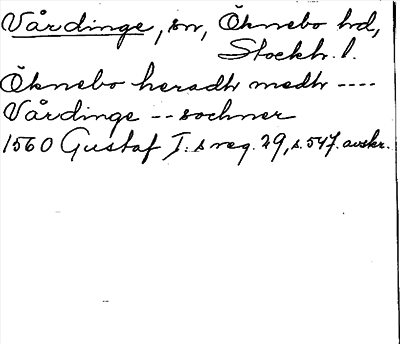 Vårdinge, sn, Öknebo hd,
Stockh. l.
Öknebo heradh medh ----
Vårdinge -- sochner
1560 Gustaf I:s reg. 29, s. 547. avskr.